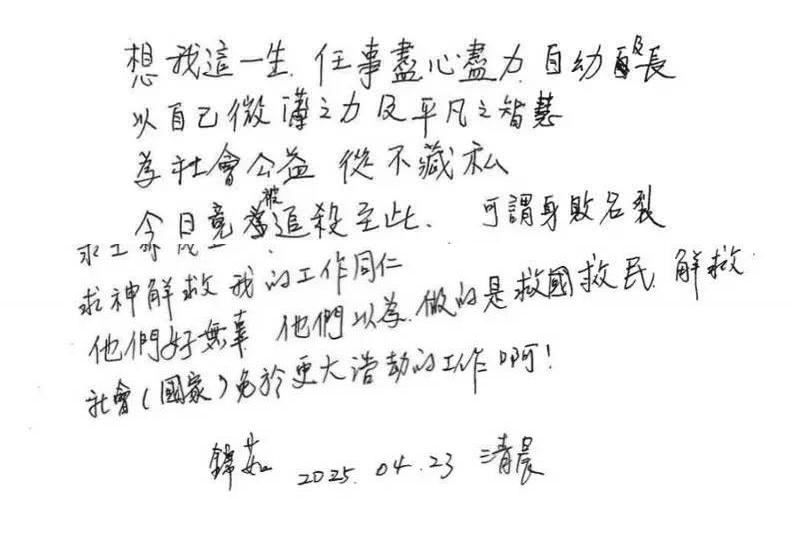 想我這一生. 任事盡心盡力. 自幼及長
以自己微薄之力及平凡之智慧
為社會公益 從不藏私
今日竟被追殺至此. 可謂身敗名裂
求神解救我的工作同仁
他們好無辜 他們以為做的是救國救民. 解救
社會(國家)免於更大浩劫的工作啊!
錦茹 2025.04.23 清晨